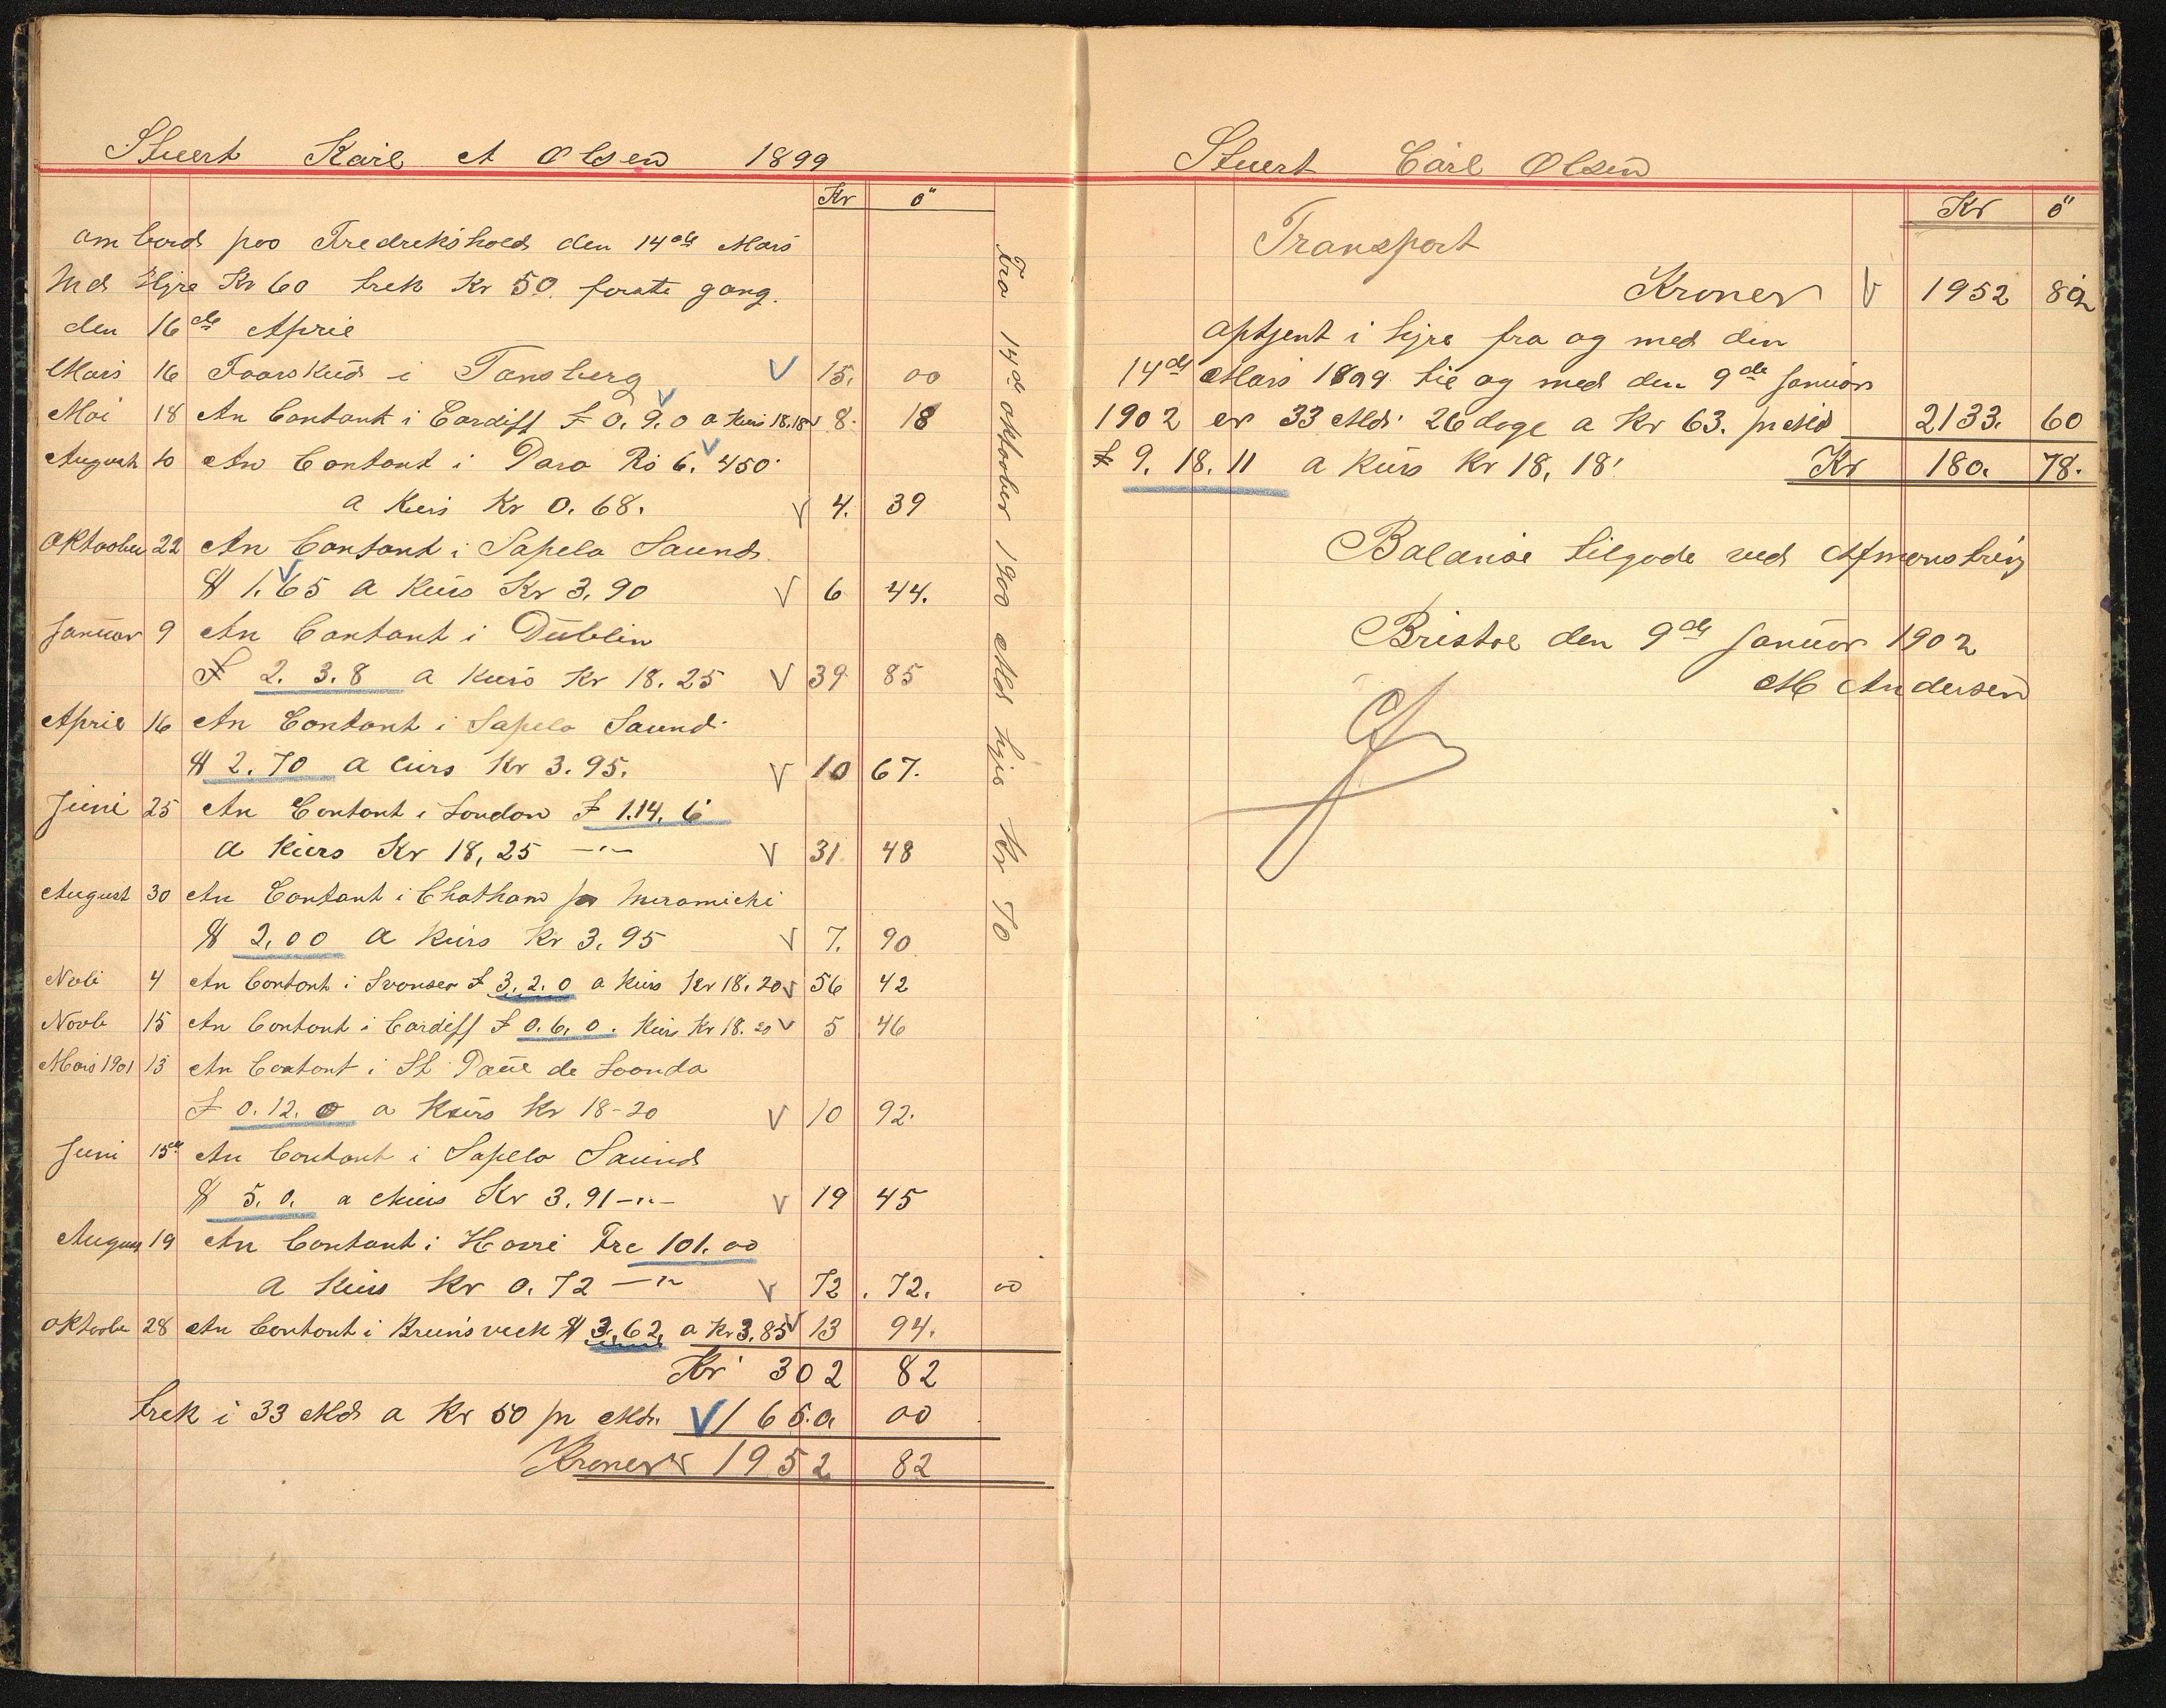 Stuert Karl A Olsen 1899
Kr ö
om bord paa Fredrekshold den 14de Mars
Med Hyre Kr 60 trek Kr 50 forste gang.
den 16de April
Mars 16 Foorskud i Tonsberg V 15. 00
Mai 18 An Contant i Cardiff £ 0. 9. 0 a Kurs 18.18 V 8. 18
August 10 An Contant i Para Rs 6. 450
a Kurs Kr 0. 68. V 4. 39
Oktoober 22 An Contant i Sapelo Saund
$ 1. 65 a Kurs Kr 3. 90 V 6 44.
Januar 9 An Contant i Dublin
£ 2. 3. 8 a Kurs Kr 18. 25 V 39 85
April 16 An Contant i Sapelo Saund
$ 2. 70 a Curs Kr 3. 95. V 10 67.
Juni 25 An Contant i London £ 1.14. 6
a Kurs Kr 18, 25 -"- V 31 48
August 30 An Contant i Chatham pr Miramichi
$ 2,00 a Kurs Kr 3. 95 V 7. 90
Novb 4 An Contant i Svansea £ 3. 2. 0 a Kurs Kr 18. 20 V 56 42
Novb 15 An Contant i Cardiff £ 0. 6. 0. Kurs Kr 18. 20 V 5 46
Mars 1901 13 An Contant i St Paul de Loanda
£ 0. 12. 0 a Kurs Kr 18-20 V 10 92.
Juni 15de An Contant i Sapelo Saund
$ 5. 0. a Kurs Kr 3. 91 -"- V 19 45
August 19 An Contant i Havre Frc 101. 00
a Kurs Kr 0. 72 -"- V 72 . 72. 00
Oktoober 28 An Contant i Brunsveck $ 3. 62. a Kr 3. 85 V 13 94.
Kr 302 82
trek i 33 Md a Kr 50 pr Md. V 1650 00
Kroner 1952 82
Fra 14d Oktoober 1900 Md hyre Kr 70
Stuert Carl Olsen
Kr ö
Transport
Kroner V 1952 82
optjent i hyre fra og med den
14de Mars 1899 til og med den 9de Januar
1902 er 33 Md. 26 dage a Kr 63. pr Md 2133. 60
£ 9. 18. 11 a Kurs Kr 18, 18. Kr 180. 78.
Balanse tilgode ved Afmønstring
Bristol den 9de Januar 1902
M Andersen